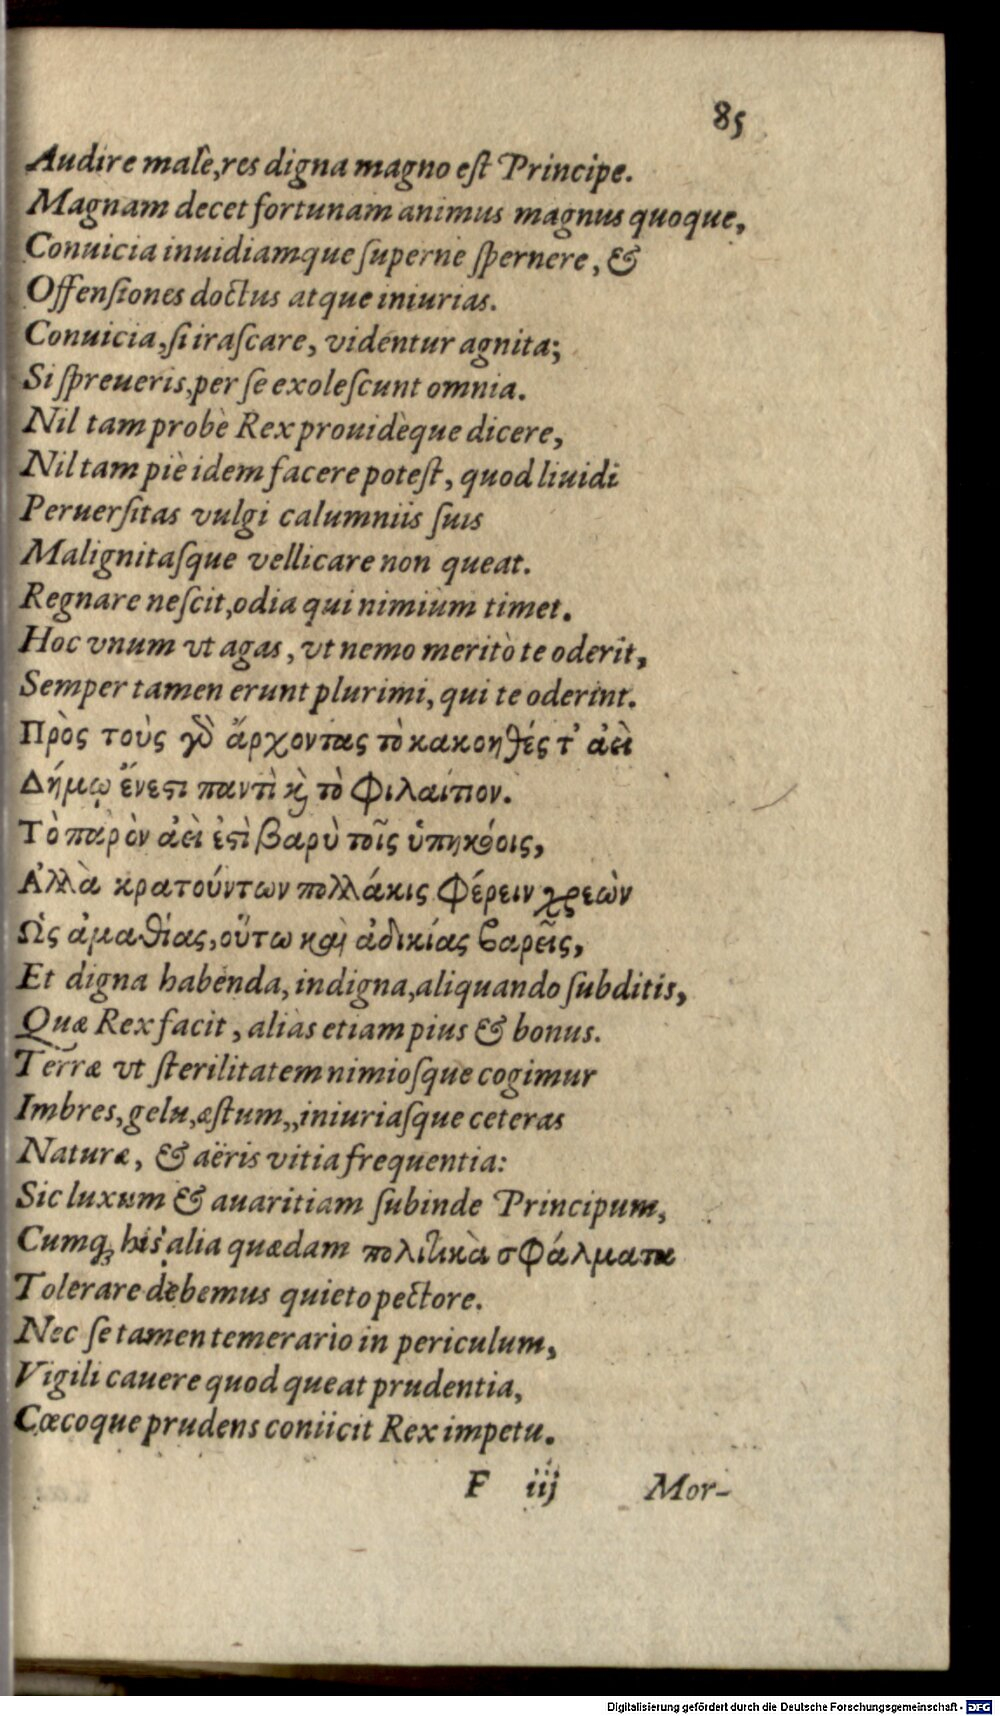 85
Audire malè, res digna magno est Principe.
Magnam decet fortunam animus magnus quoque,
Conuicia inuidiamque supernè spernere, &
Offensiones doctus atque iniurias.
Conuicia, si irascare, videntur agnita;
Si spreueris, per se exolescunt omnia.
Nil tam probè Rex prouidèque dicere,
Nil tam piè idem facere potest, quod liuidi
Peruersitas vulgi calumniis suis
Malignitasque vellicare non queat.
Regnare nescit, odia qui nimiùm timet.
Hoc vnum vt agas, vt nemo meritò te oderit,
Semper tamen erunt plurimi, qui te oderint.
Πρὸς τοὺς γὸ ἄρχοντας τὸ κακοηθές τ' ἀεὶ
Δήμῳ ἔνεστι παντὶ κὶ τὸ φιλαίτιον.
Τὸ παρὸν ἀεὶ ἐστὶ βαρὺ τοῖς ὑπηκόοις,
Ἀλλὰ κρατούντων πολλάκις φέρειν χρεὼν
Ὡς ἀμαθίας, οὕτω καὶ ἀδικίας βαρεῖς,
Et digna habenda, indigna, aliquando subditis,
Quæ Rex facit, aliàs etiam pius & bonus.
Terræ vt sterilitatem nimiosque cogimur
Imbres, gelu, æstum,, iniuriasque ceteras
Naturæ, & aëris vitia frequentia:
Sic luxum & auaritiam subinde Principum,
Cumq; his alia quædam πολιτικὰ σφάλματα
Tolerare debemus quieto pectore.
Nec se tamen temerario in periculum,
Vigili cauere quod queat prudentia,
Cœcoque prudens coniicit Rex impetu.
F iij Mor-
Digitalisierung gefördert durch die Deutsche Forschungsgemeinschaft - DFG